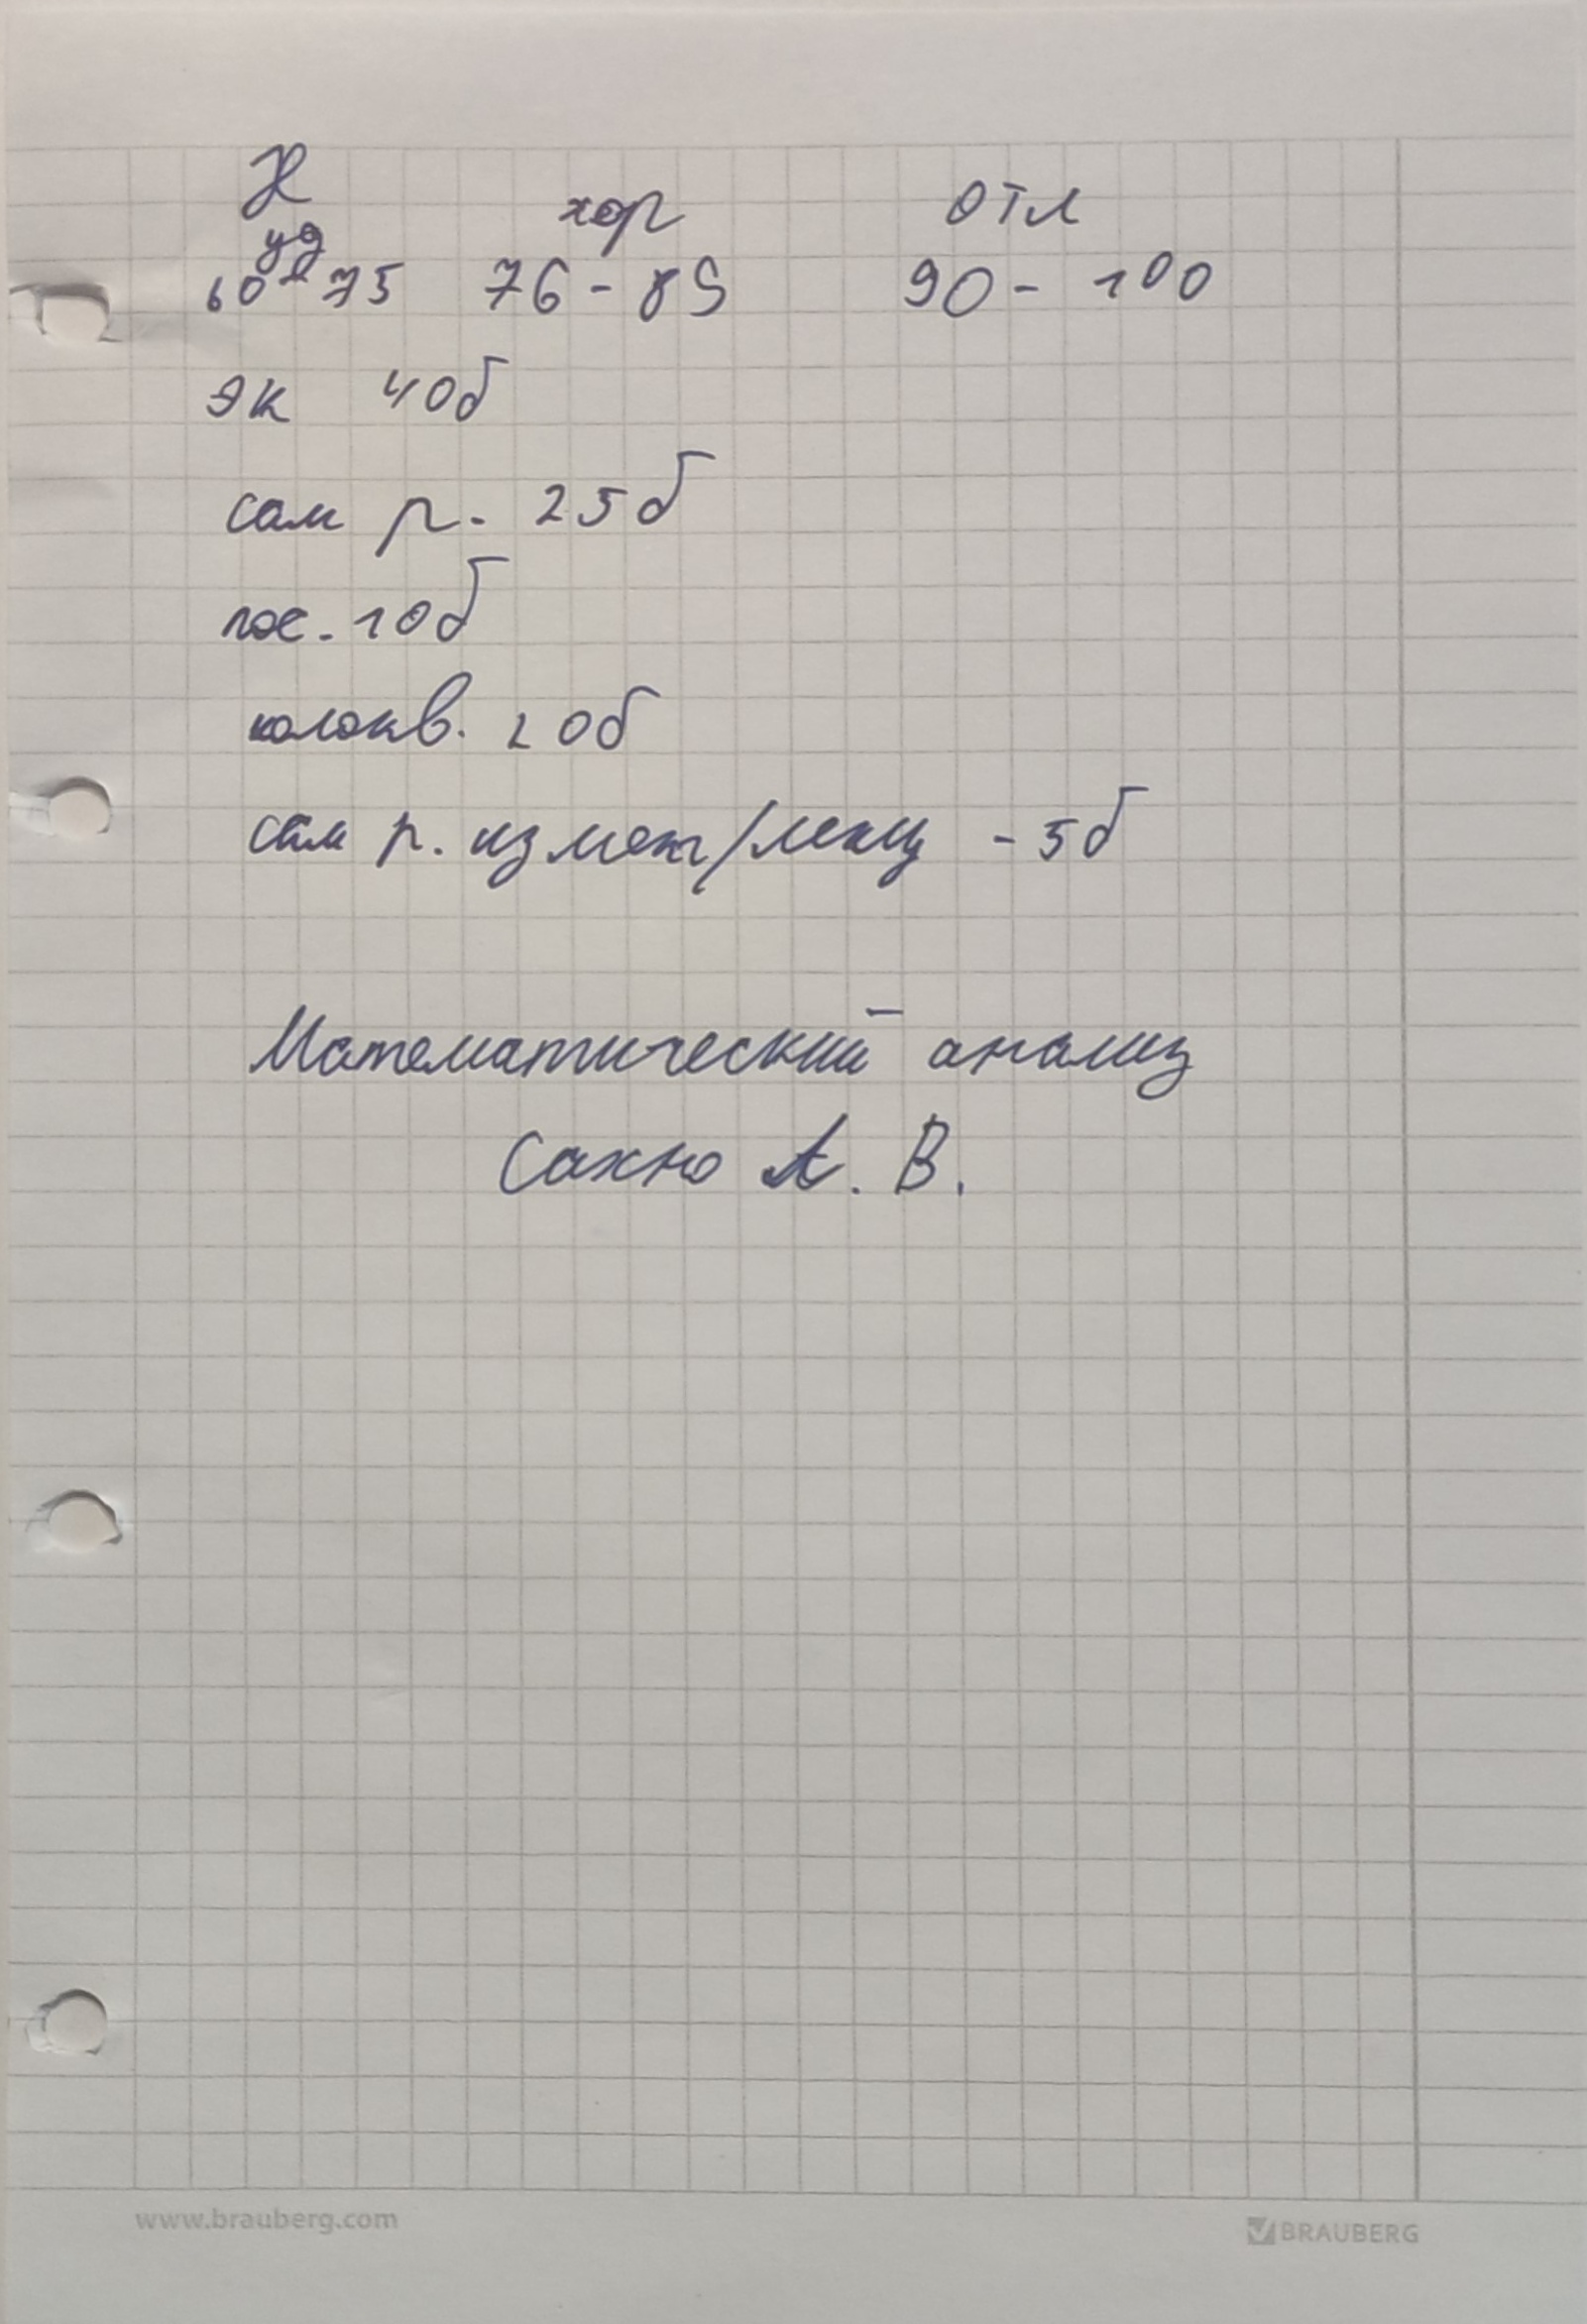 уд хор отл
60-75 76-89 90-100
эк 40б
сам р. 25б
пос. 10б
коллокв. 20б
сам р. /лекц - 5б
Математический анализ
Сахно А. В.
www.brauberg.com BRAUBERG